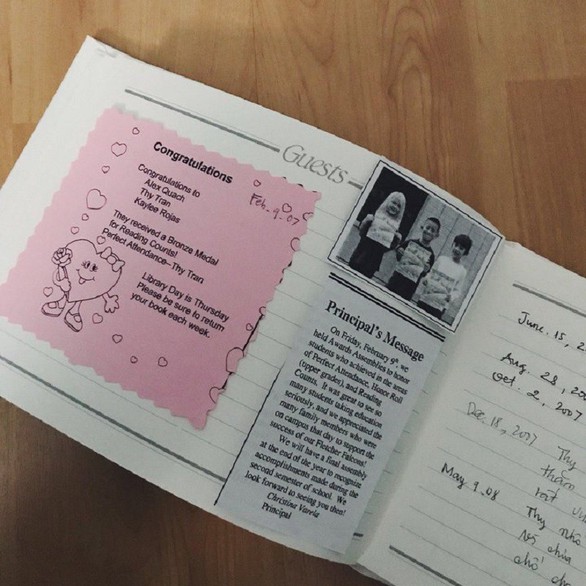 Guests
Congratulations
Congratulations to
Alex Quach
Thy Tran
Kaylee Rojas
They received a Bronze Medal
for Reading Counts!
Perfect Attendance–Thy Tran
Library Day is Thursday
Please be sure to return
your book each week.
Feb. 9. 07
Principal's Message
On Friday, February 9th, we
held Awards Assemblies to honor
students who achieved in the areas
of Perfect Attendance, Honor Roll
(upper grades), and Reading
Counts. It was great to see so
many students taking education
seriously, and we appreciated the
many family members who were
on campus that day to support the
success of our Fletcher Falcons!
We will have a final assembly
at the end of the year to recognize
accomplishments made during the
second semester of school. We
look forward to seeing you then!
Christina
Principal
June. 15, 2
Aug. 28, 200
Oct. 2, 2007
Dec. 18, 2007
Thy
May 9. 08
Thy